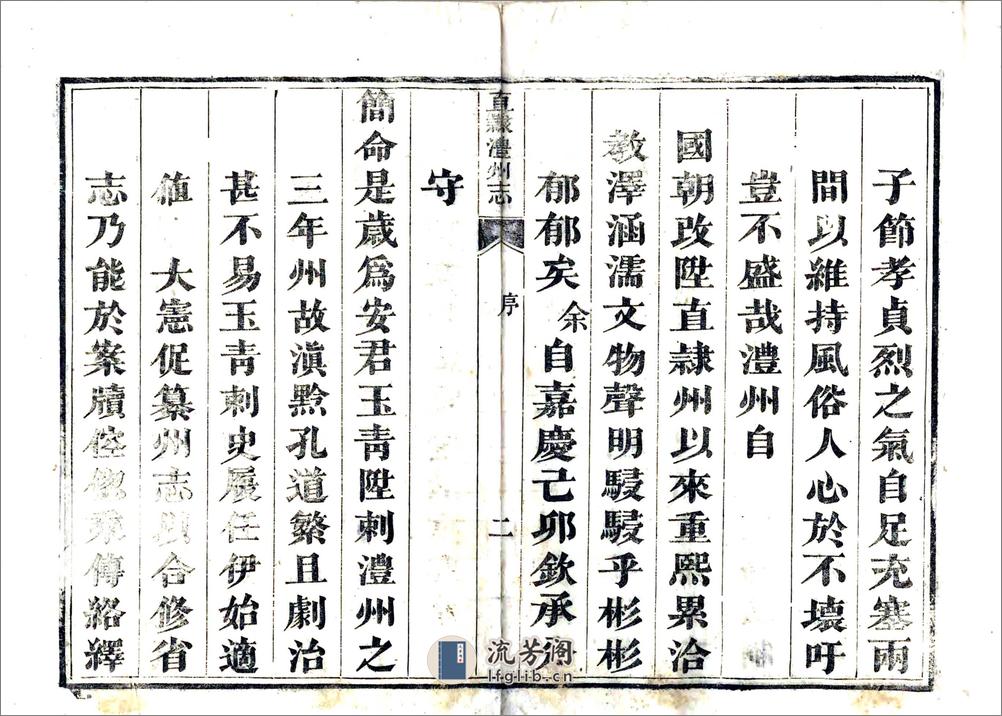 子節孝貞烈之氣自足充塞兩
間以維持風俗人心於不壞吁
豈不盛哉澧州自
國朝改陞直隷州以來重熙累洽
教澤涵濡文物聲明駸駸乎彬彬
郁郁矣余自嘉慶己卯欽承
直隷澧州志
序
二
守
簡命是歲爲安君玉青陞刺澧州之
三年州故滇黔孔道繁且劇治
甚不易玉青刺史履任伊始適
值 大憲促纂州志合修省
志乃能於案牘倥傯乘傳絡繹
流芳阁
lfglib.cn